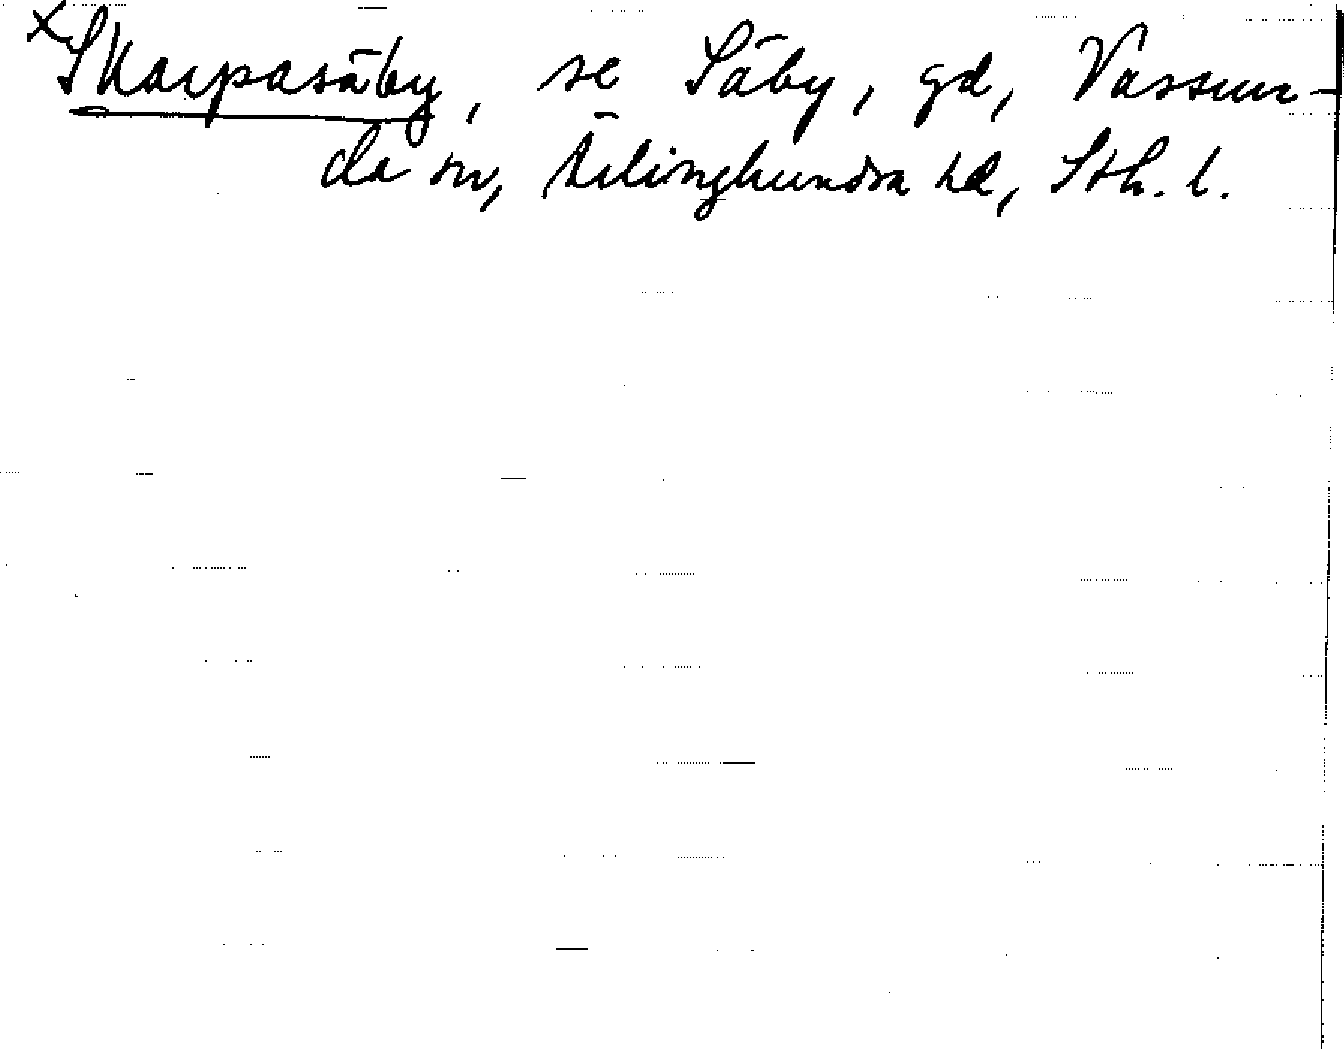 ×Skarpasäby, se Säby, gd, Vassun-
da sn, Ärlinghundra hd, Sth. l.